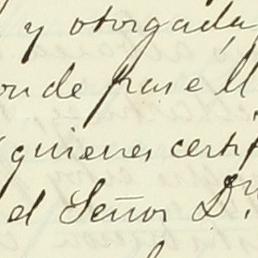 y otorgada
onde pase ll
quienes certi
el Señor D.